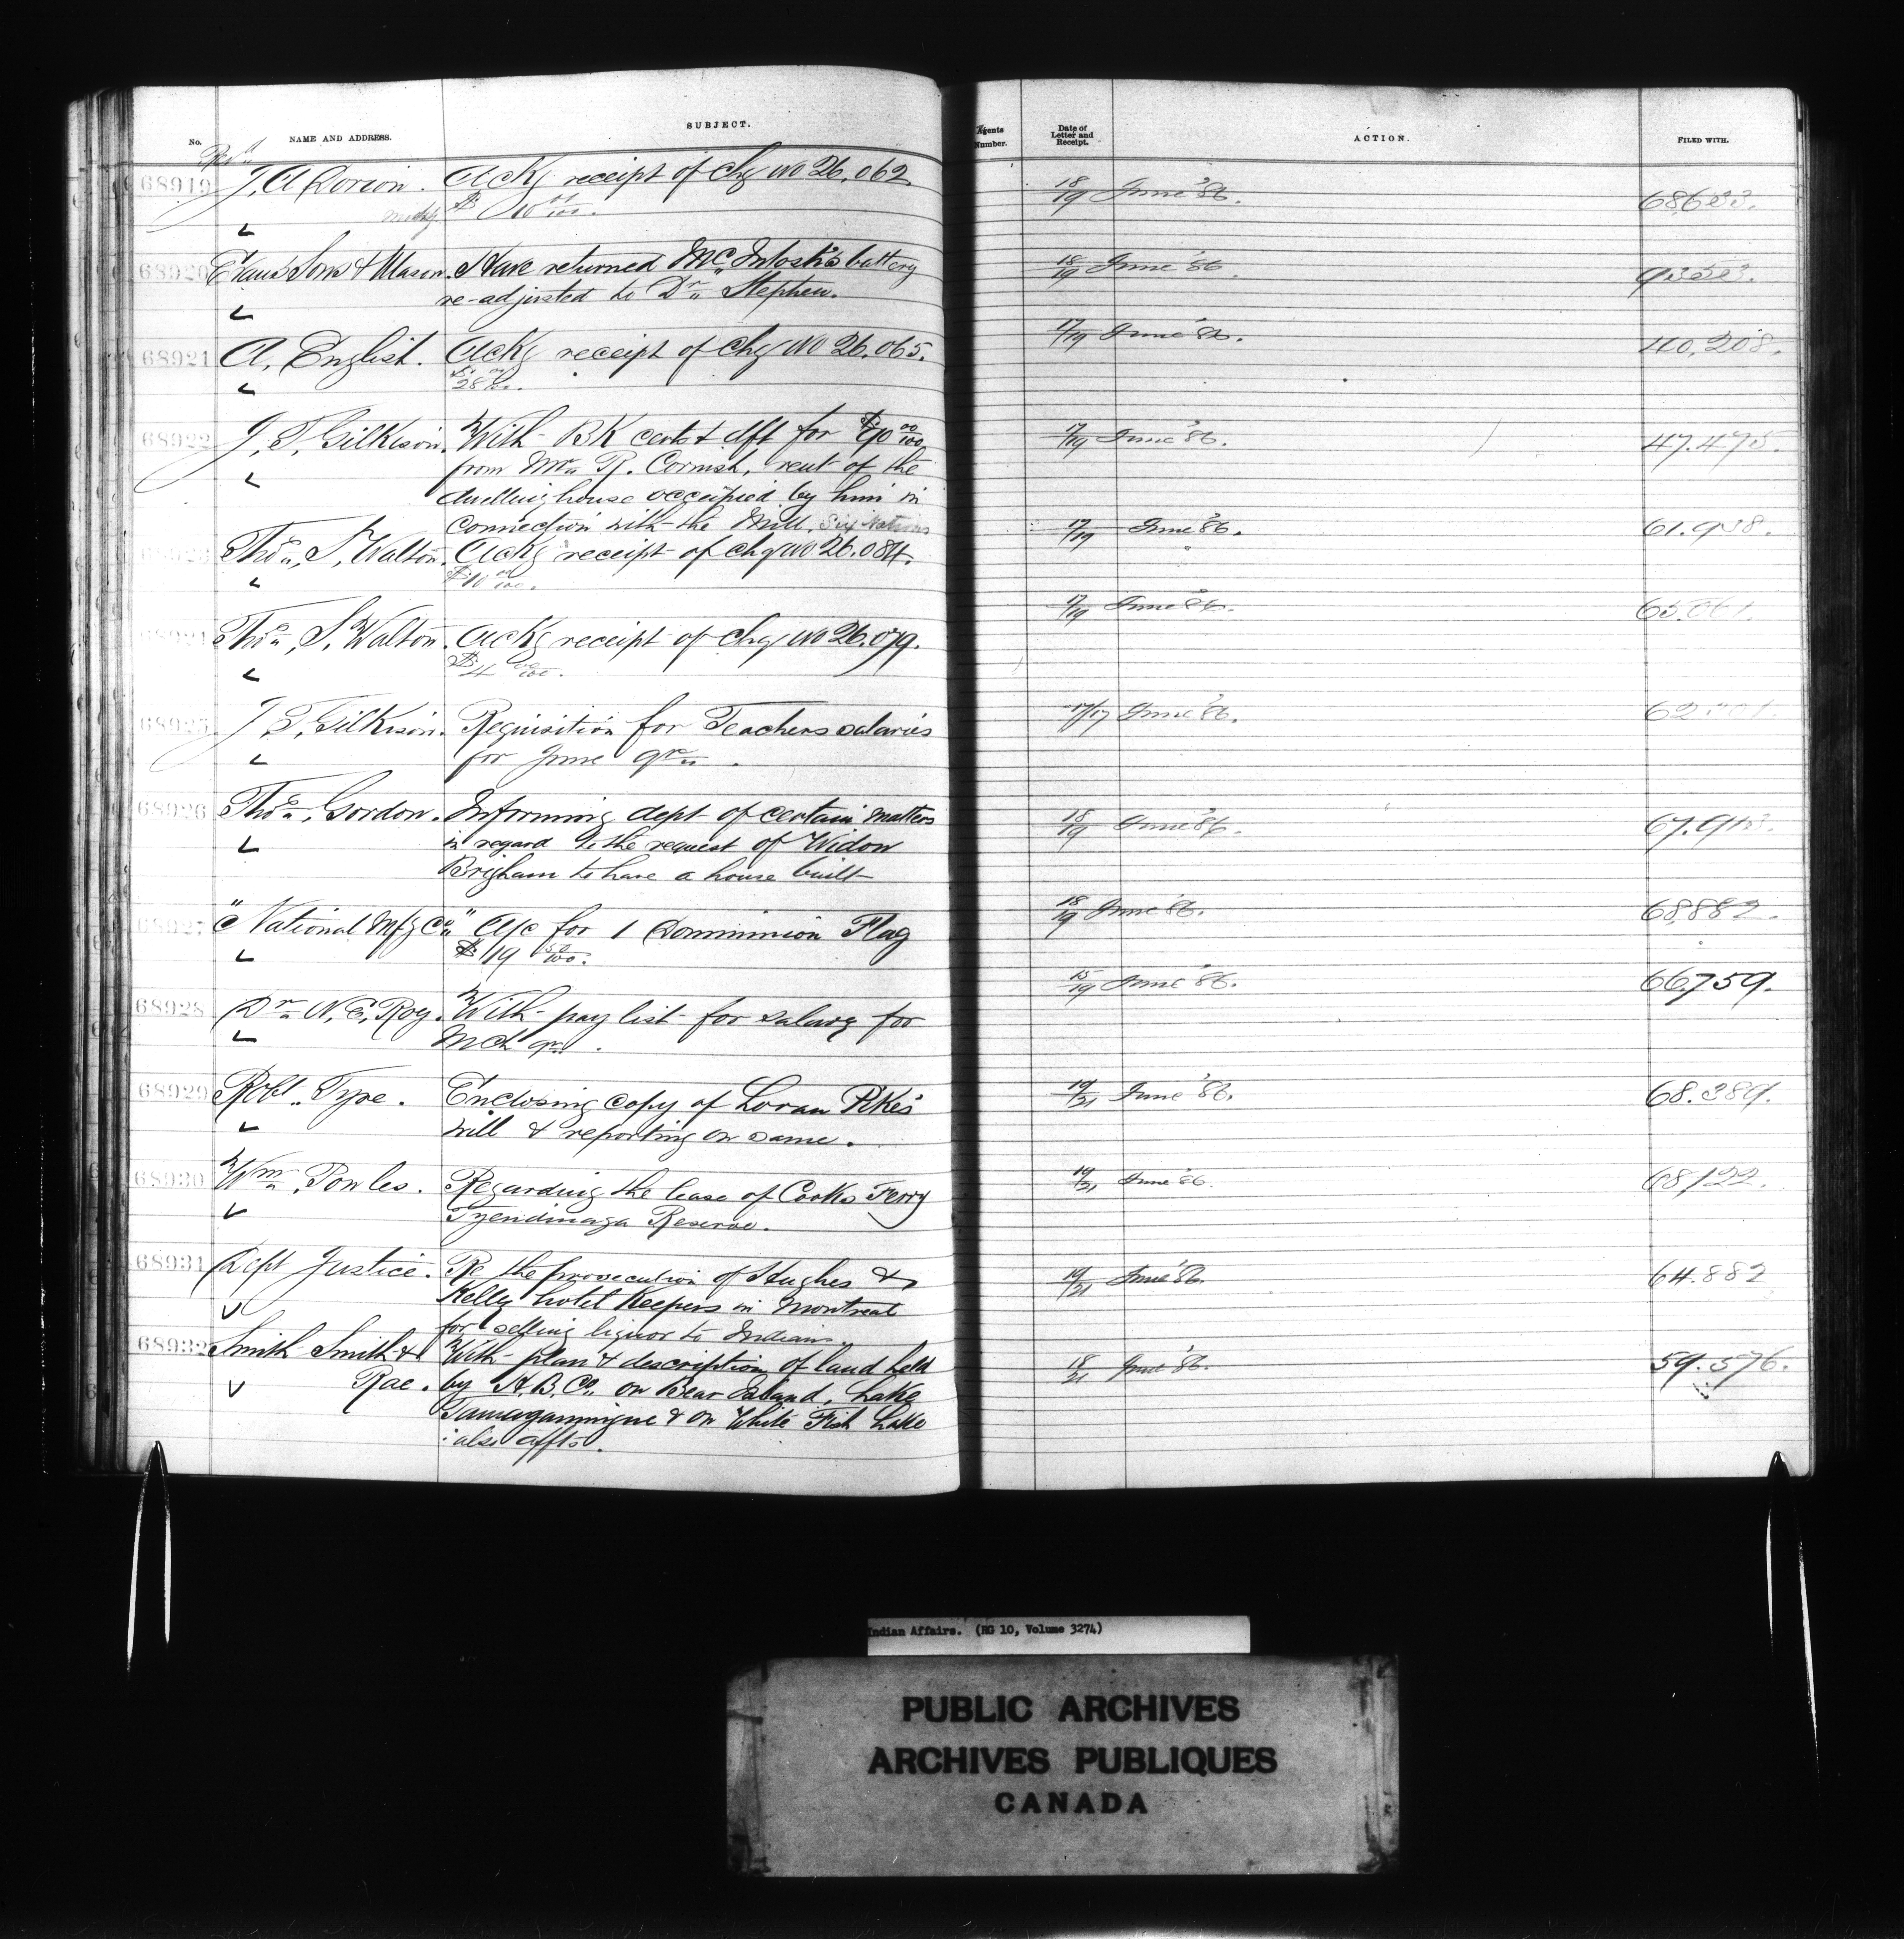 No. NAME AND ADDRESS. SUBJECT. Agents Number. Date of Letter and Receipt. ACTION. FILED WITH.
Revd
68919 J. A. Dorion. Ackg receipt of chq No 26.062 18/19 June '86. 68,633.
$10 00/100.
68920 Evans Sons & Mason. Have returned McIntosh's battery 18/19 June '86.
re-adjusted to Dr. Stephen.
68921 A. English. Ackg receipt of chq No 26.065. 17/19 June '86. 40,208.
$28 00/100.
68922 J. T. Gilkison. With BK cert & dft for 17/19 June '86. 47.475.
from Mr. R. Cornish, rent of the
dwelling house occupied by him in
connection with the Mill, Six Nations
Thos. S. Walton. Ackg receipt of chq No 26.084. 17/19 June '86. 61.938.
$10 00/100.
Thos. S. Walton. Ackg receipt of chq No 26.079. 17/19 June '86.
$4 00/100.
68925 J. T. Gilkison. Requisition for Teachers salaries 17/17 June '86.
for June qr.
68926 Thos. Gordon. Informing dept of certain matters 18/19 June '86.
in regard to the request of Widow
Brigham to have a house built
68927 "National Mfg Co." A/c for 1 Dominion Flag 18/19 June '86. 68,882.
$19 50/100.
68928 Dr. N. E. Roy. With pay list for salary for 15/19 June '86. 66.759.
Mch qr.
68929 Robt. Type. Enclosing copy of Loran Pike's 19/21 June '86. 68.389.
will & reporting on same.
68930 Wm. Powles. Regarding the lease of Cooks Ferry 19/21 June '86. 68122.
Tyendinaga Reserve.
68931 Dept Justice. Re the prosecution of Hughes & 19/21 June '86. 64.882
Kelly hotel Keepers in Montreal
for selling liquor to Indians.
68932 Smith Smith & With plan & description of land held 18/21 June '86. 59.576.
Rae. by H.B.Co. on Bear Island, Lake
Tamagamingue & on White Fish Lake
also affts.
Indian Affairs. (RG 10, Volume 3274)
PUBLIC ARCHIVES
ARCHIVES PUBLIQUES
CANADA